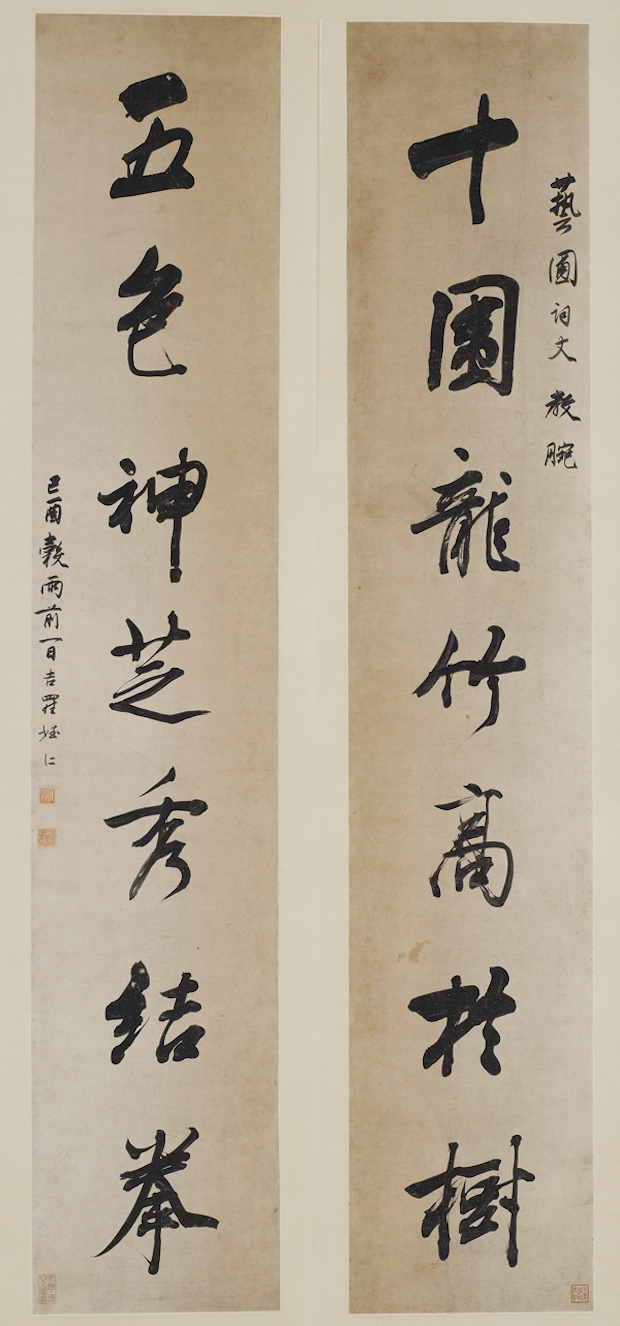 藝圃詞丈 教腕
十圍龍竹高於樹
五色神芝秀結拳
己酉穀雨前一日吉羅姪仁